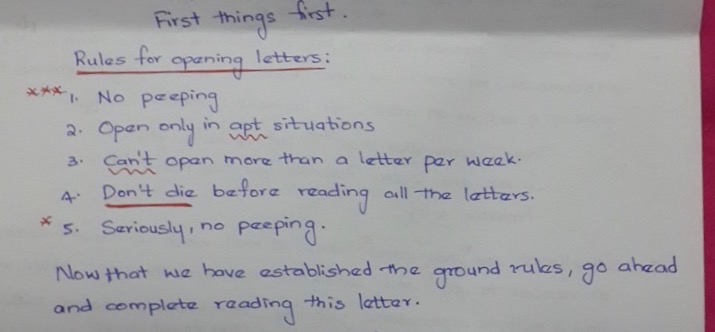 First things first.
Rules for opening letters:
*** 1. No peeping
2. Open only in apt situations
3. Can't open more than a letter per week.
4. Don't die before reading all the letters.
* 5. Seriously, no peeping.
Now that we have established the ground rules, go ahead
and complete reading this letter.